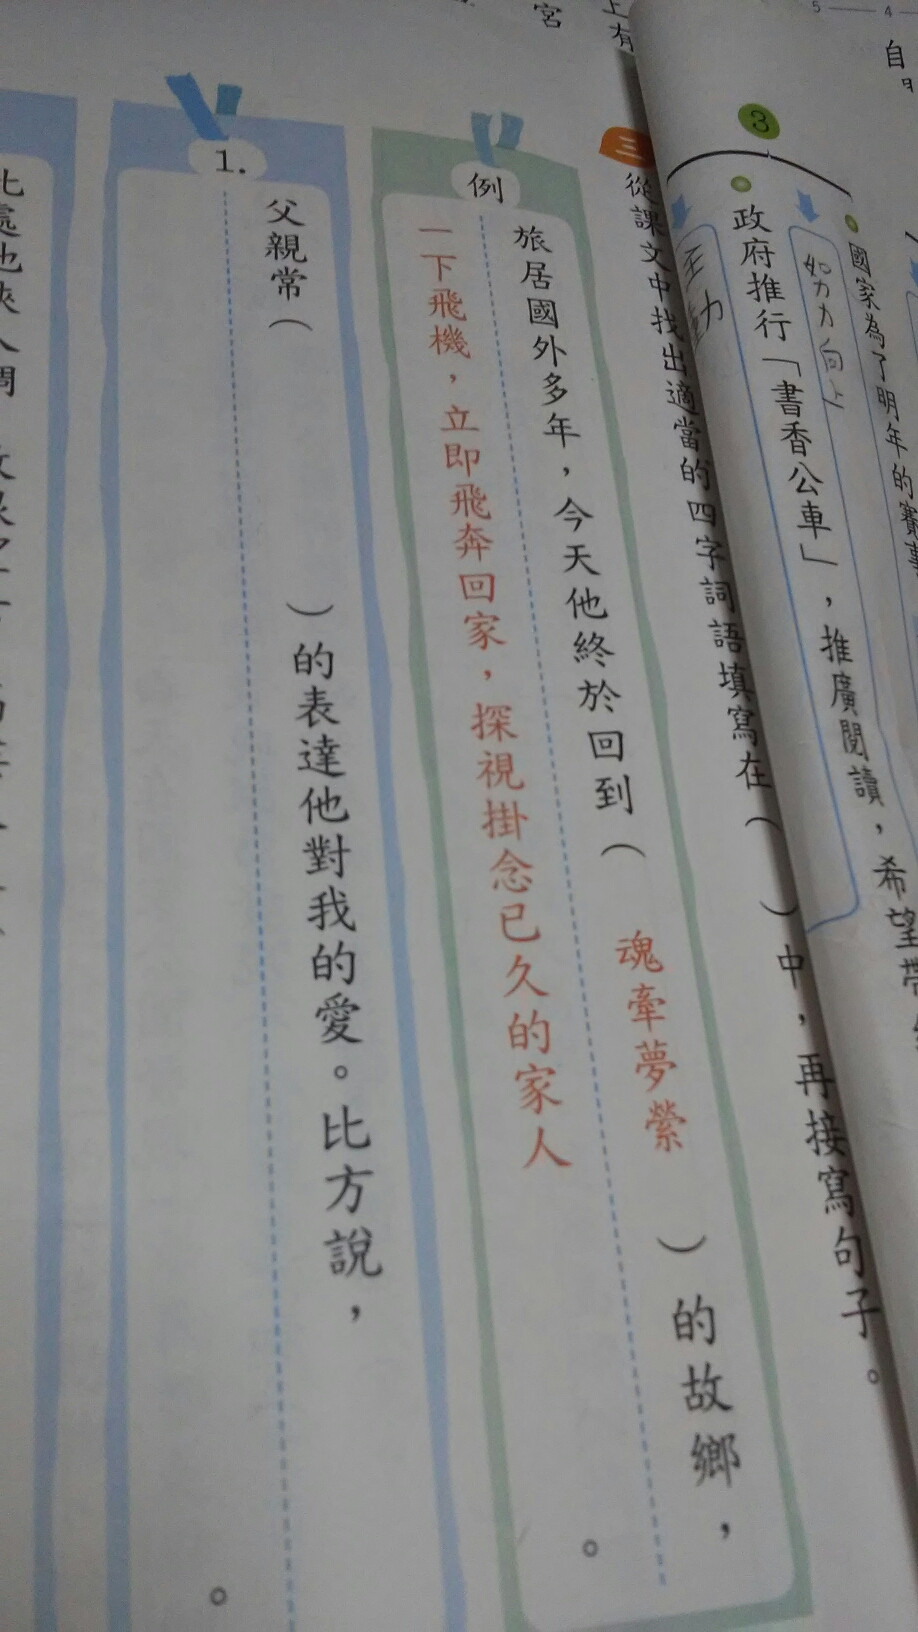 5 4
自
國家為了明年的賽事
努力向上
3
政府推行「書香公車」，推廣閱讀，希望帶
三
從課文中找出適當的四字詞語填寫在（）中，再接寫句子。
例
旅居國外多年，今天他終於回到（魂牽夢縈）的故鄉，
一下飛機，立即飛奔回家，探視掛念已久的家人。
1.
父親常（）的表達他對我的愛。比方說，
。
宮
上有